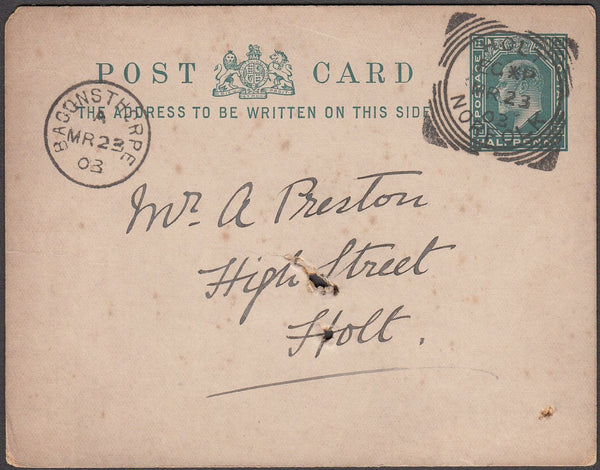 POST CARD
THE ADDRESS TO BE WRITTEN ON THIS SIDE
BACONSTHORPE
A
MR 23
03
HOLT
C*P
MR 23
03
NORFOLK
POSTAGE
HALFPENNY
Mr. A Preston
High Street
Holt.